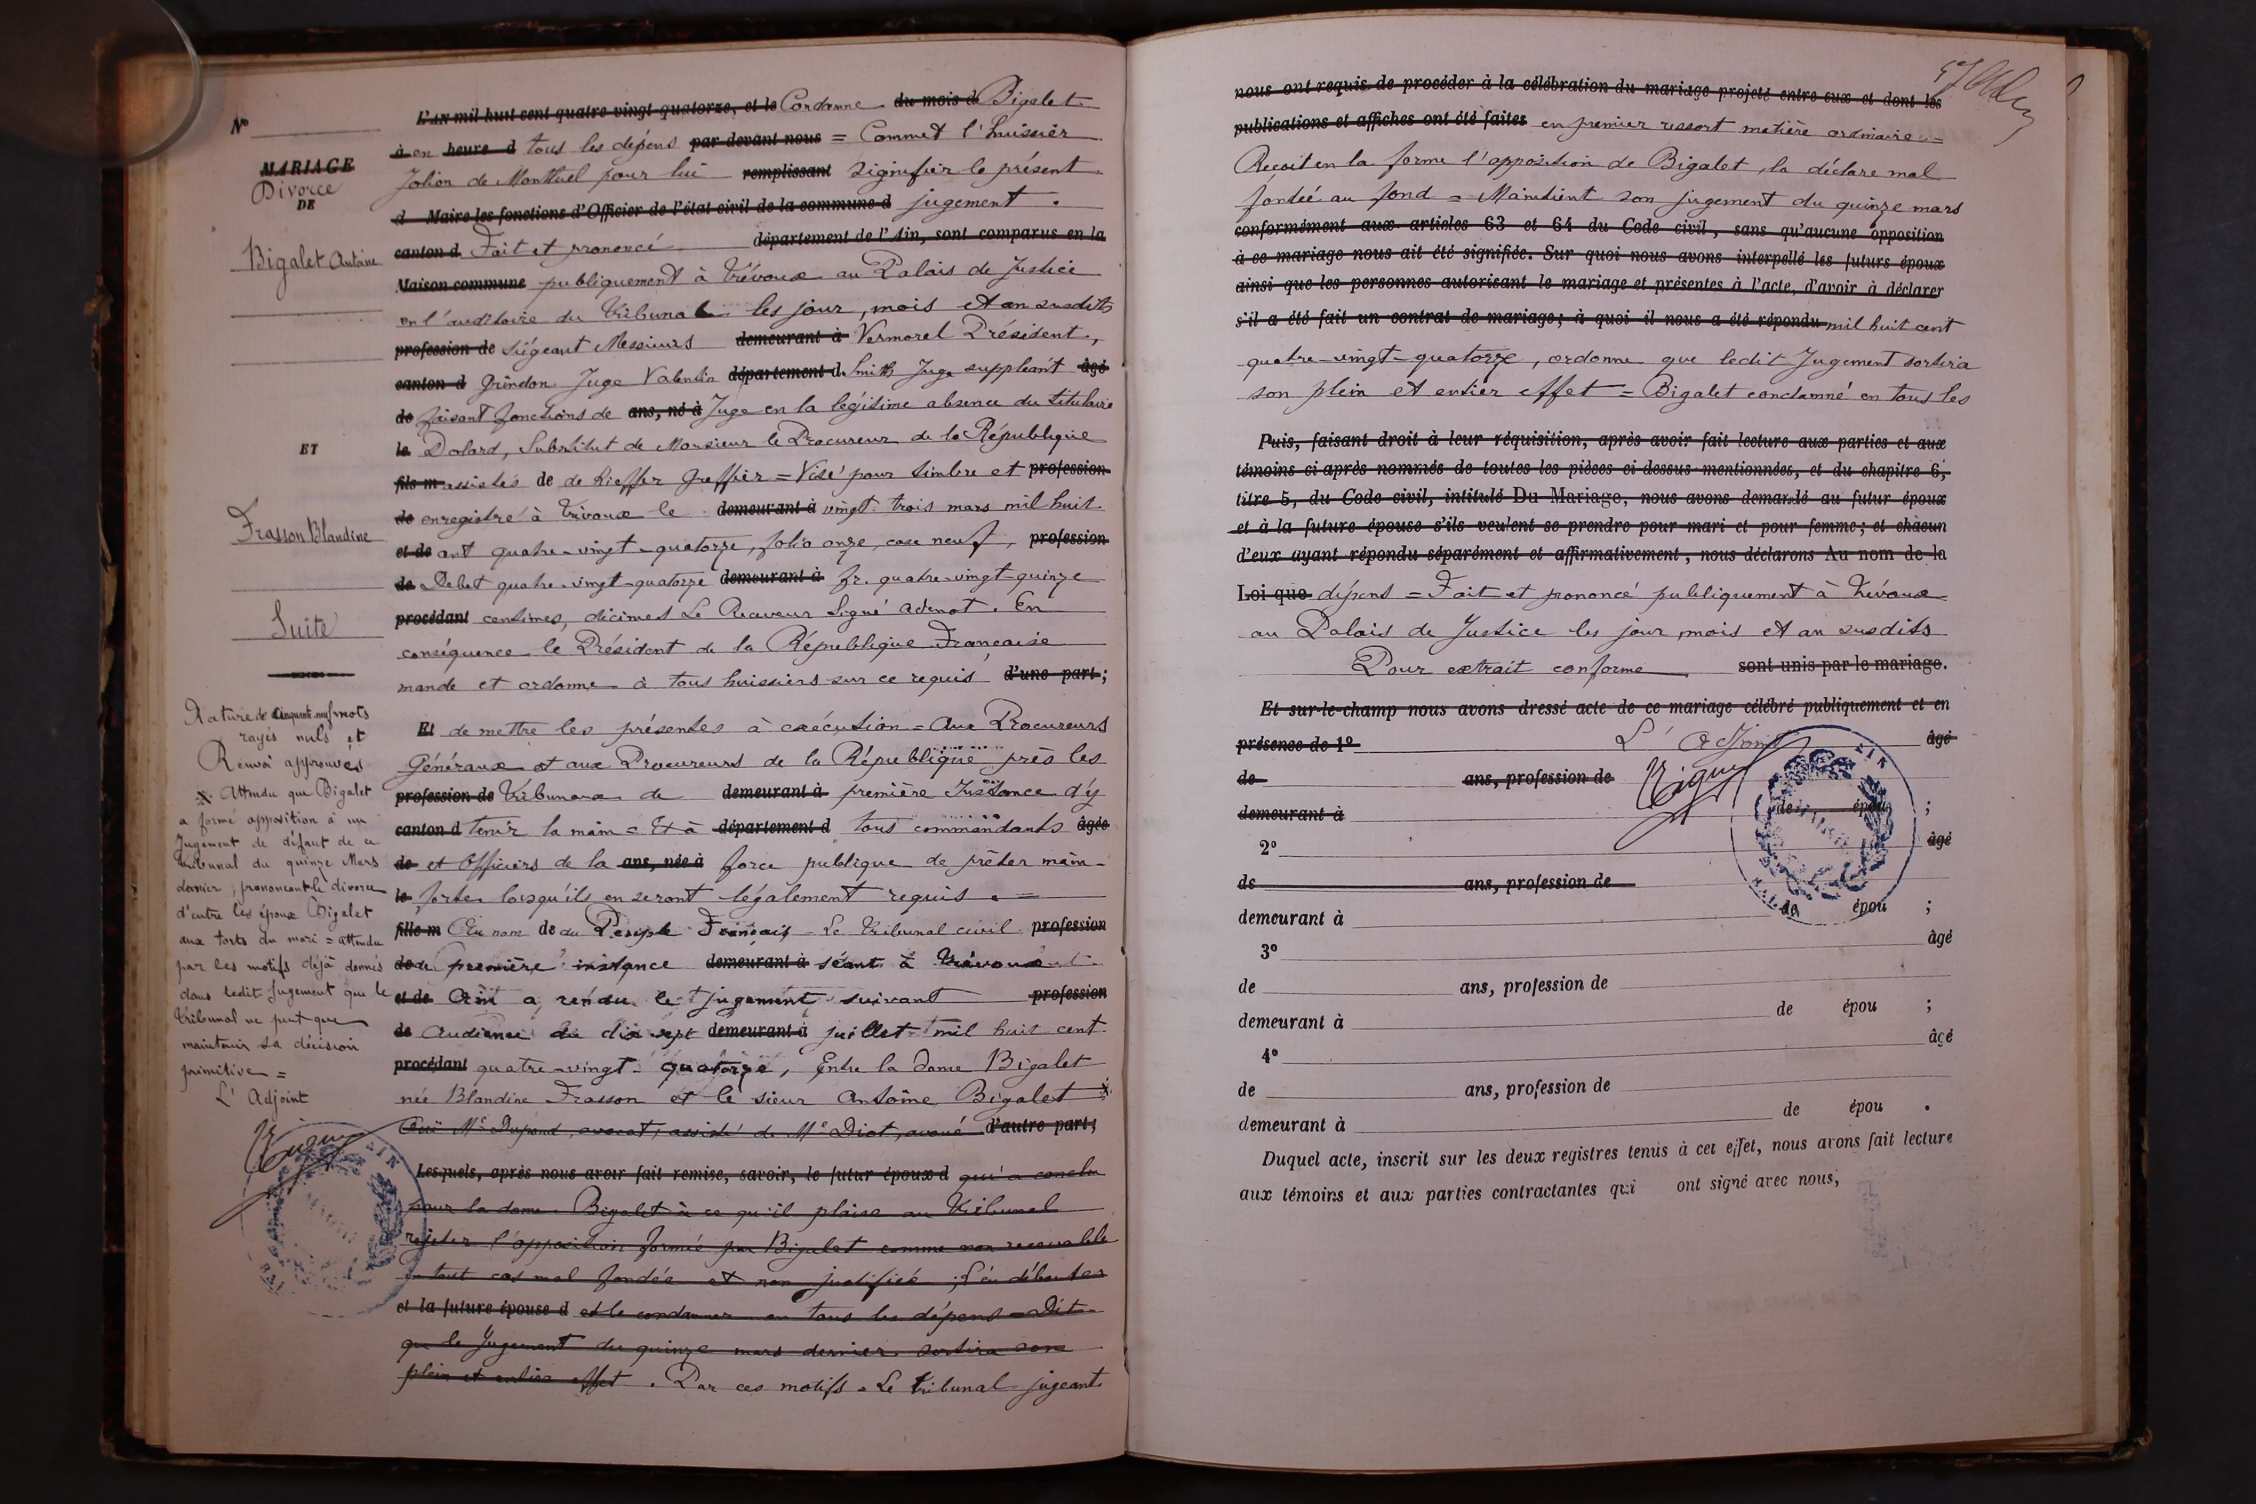 N°
MARIAGE
Divorce
DE
Bigalet Antoine
ET
Frasson Blandine
Suite
Rature de cinquante neuf mots
rayés nuls et
Renvoi approuvés
Attendu que Bigalet
a formé opposition à un
Jugement de défaut de ce
tribunal du quinze Mars
dernier, prononçant le divorce
d'entre les époux Bigalet
aux torts du mari = attendu
par les motifs déjà donnés
dans ledit Jugement que le
Tribunal ne peut que
maintenir sa décision
primitive =
L'Adjoint
L'AN mil huit cent quatre-vingt-quatorze, et le Condamne du mois d Bigalet
à en heure d tous les dépens par-devant nous = Commet l'huissier
Jolion de Montluel pour lui remplissant signifier le présent
d Maire les fonctions d'Officier de l'état civil de la commune d jugement.
canton d Fait et prononcé département de l'Ain, sont comparus en la
Maison commune publiquement à Trévoux au Palais de Justice
en l'auditoire du Tribunal les jour, mois et an susdits
profession de siégeant Messieurs demeurant à Vermorel Président,
canton d Grindon Juge Valentin département d Smith Juge suppléant âgé
de faisant fonctions de ans, né à Juge en la légitime absence du titulaire
le Dolard, Substitut de Monsieur le Procureur de la République
fils m assistés de de Kieffer Greffier = Visé pour timbre et profession
de enregistré à Trévoux le demeurant à vingt trois mars mil huit
et de ant quatre-vingt-quatorze, folio onze, case neuf, profession
de Debet quatre-vingt-quatorze demeurant à fr. quatre-vingt-quinze
procédant centimes, décimes Le Receveur Signé Adenot. En
conséquence le Président de la République Française
mande et ordonne à tous huissiers sur ce requis d'une part;
Et de mettre les présentes à exécution = Aux Procureurs
Généraux et aux Procureurs de la République près les
profession de Tribunaux de demeurant à première Instance d'y
canton d tenir la main = Et à département d tous commandants âgée
de et Officiers de la ans, née à force publique de prêter main-
le forte lorsqu'ils en seront légalement requis. =
fille m Au nom de du Peuple Français - Le Tribunal civil profession
de de première instance demeurant à séant à Trévoux
et de Ain a rendu le jugement suivant profession
de Audience du dix sept demeurant à juillet mil huit cent
procédant quatre-vingt-quatorze, Entre la dame Bigalet
née Blandine Frasson et le sieur Antoine Bigalet
Ouï Me Dupond, avocat, assisté de Me Diot, avoué d'autre part;
Lesquels, après nous avoir fait remise, savoir, le futur époux d qui a conclu
pour la dame Bigalet à ce qu'il plaise au Tribunal
rejeter l'opposition formée par Bigalet comme non recevable
en tout cas mal fondée et non justifiée; l'en débouter
et la future épouse d et le condamner en tous les dépens = Dit
que le Jugement du quinze mars dernier sortira son
plein et entier effet. Par ces motifs = Le tribunal jugeant
nous ont requis de procéder à la célébration du mariage projeté entre eux et dont les
publications et affiches ont été faites en premier ressort matière ordinaire =
Reçoit en la forme l'opposition de Bigalet, la déclare mal
fondée au fond = Maintient son jugement du quinze mars
conformément aux articles 63 et 64 du Code civil, sans qu'aucune opposition
à ce mariage nous ait été signifiée. Sur quoi nous avons interpellé les futurs époux
ainsi que les personnes autorisant le mariage et présentes à l'acte, d'avoir à déclarer
s'il a été fait un contrat de mariage; à quoi il nous a été répondu mil huit cent
quatre-vingt-quatorze, ordonne que ledit Jugement sortira
son plein et entier effet = Bigalet condamné en tous les
Puis, faisant droit à leur réquisition, après avoir fait lecture aux parties et aux
témoins ci-après nommés de toutes les pièces ci-dessus mentionnées, et du chapitre 6,
titre 5, du Code civil, intitulé Du Mariage, nous avons demandé au futur époux
et à la future épouse s'ils veulent se prendre pour mari et pour femme; et chacun
d'eux ayant répondu séparément et affirmativement, nous déclarons Au nom de la
Loi que dépens = Fait et prononcé publiquement à Trévoux
au Palais de Justice les jour, mois et an susdits
Pour extrait conforme sont unis par le mariage.
Et sur-le-champ nous avons dressé acte de ce mariage célébré publiquement et en
présence de 1° L'Adjoint âgé
de ans, profession de
demeurant à de épou ;
2° âgé
de ans, profession de
demeurant à de épou ;
3° âgé
de ans, profession de
demeurant à de épou ;
4° âgé
de ans, profession de
demeurant à de épou .
Duquel acte, inscrit sur les deux registres tenus à cet effet, nous avons fait lecture
aux témoins et aux parties contractantes qui ont signé avec nous;